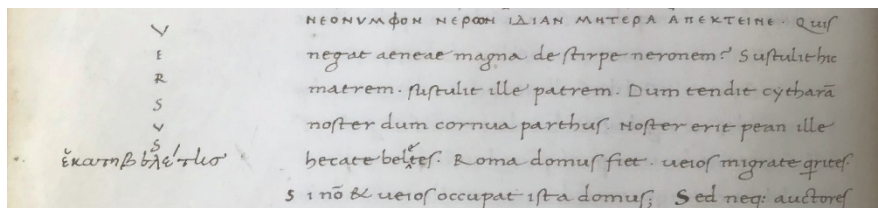 ΝΕΟΝΥΜΦΟΝ ΝΕΡΩΝ ΙΔΙΑΝ ΜΗΤΕΡΑ ΑΠΕΚΤΕΙΝΕ · Quiſ
negat aeneae magna de ſtirpe neronem? Suſtulit hic
matrem · ſuſtulit ille patrem · Dum tendit cytharā
noſter dum cornua parthuſ · Noſter erit pean ille
hecate beletes · Roma domuſ fiet · ueioſ migrate qriteſ·
Si nō & ueioſ occupat iſta domuſ; Sed neq: auctoreſ
VERSVS